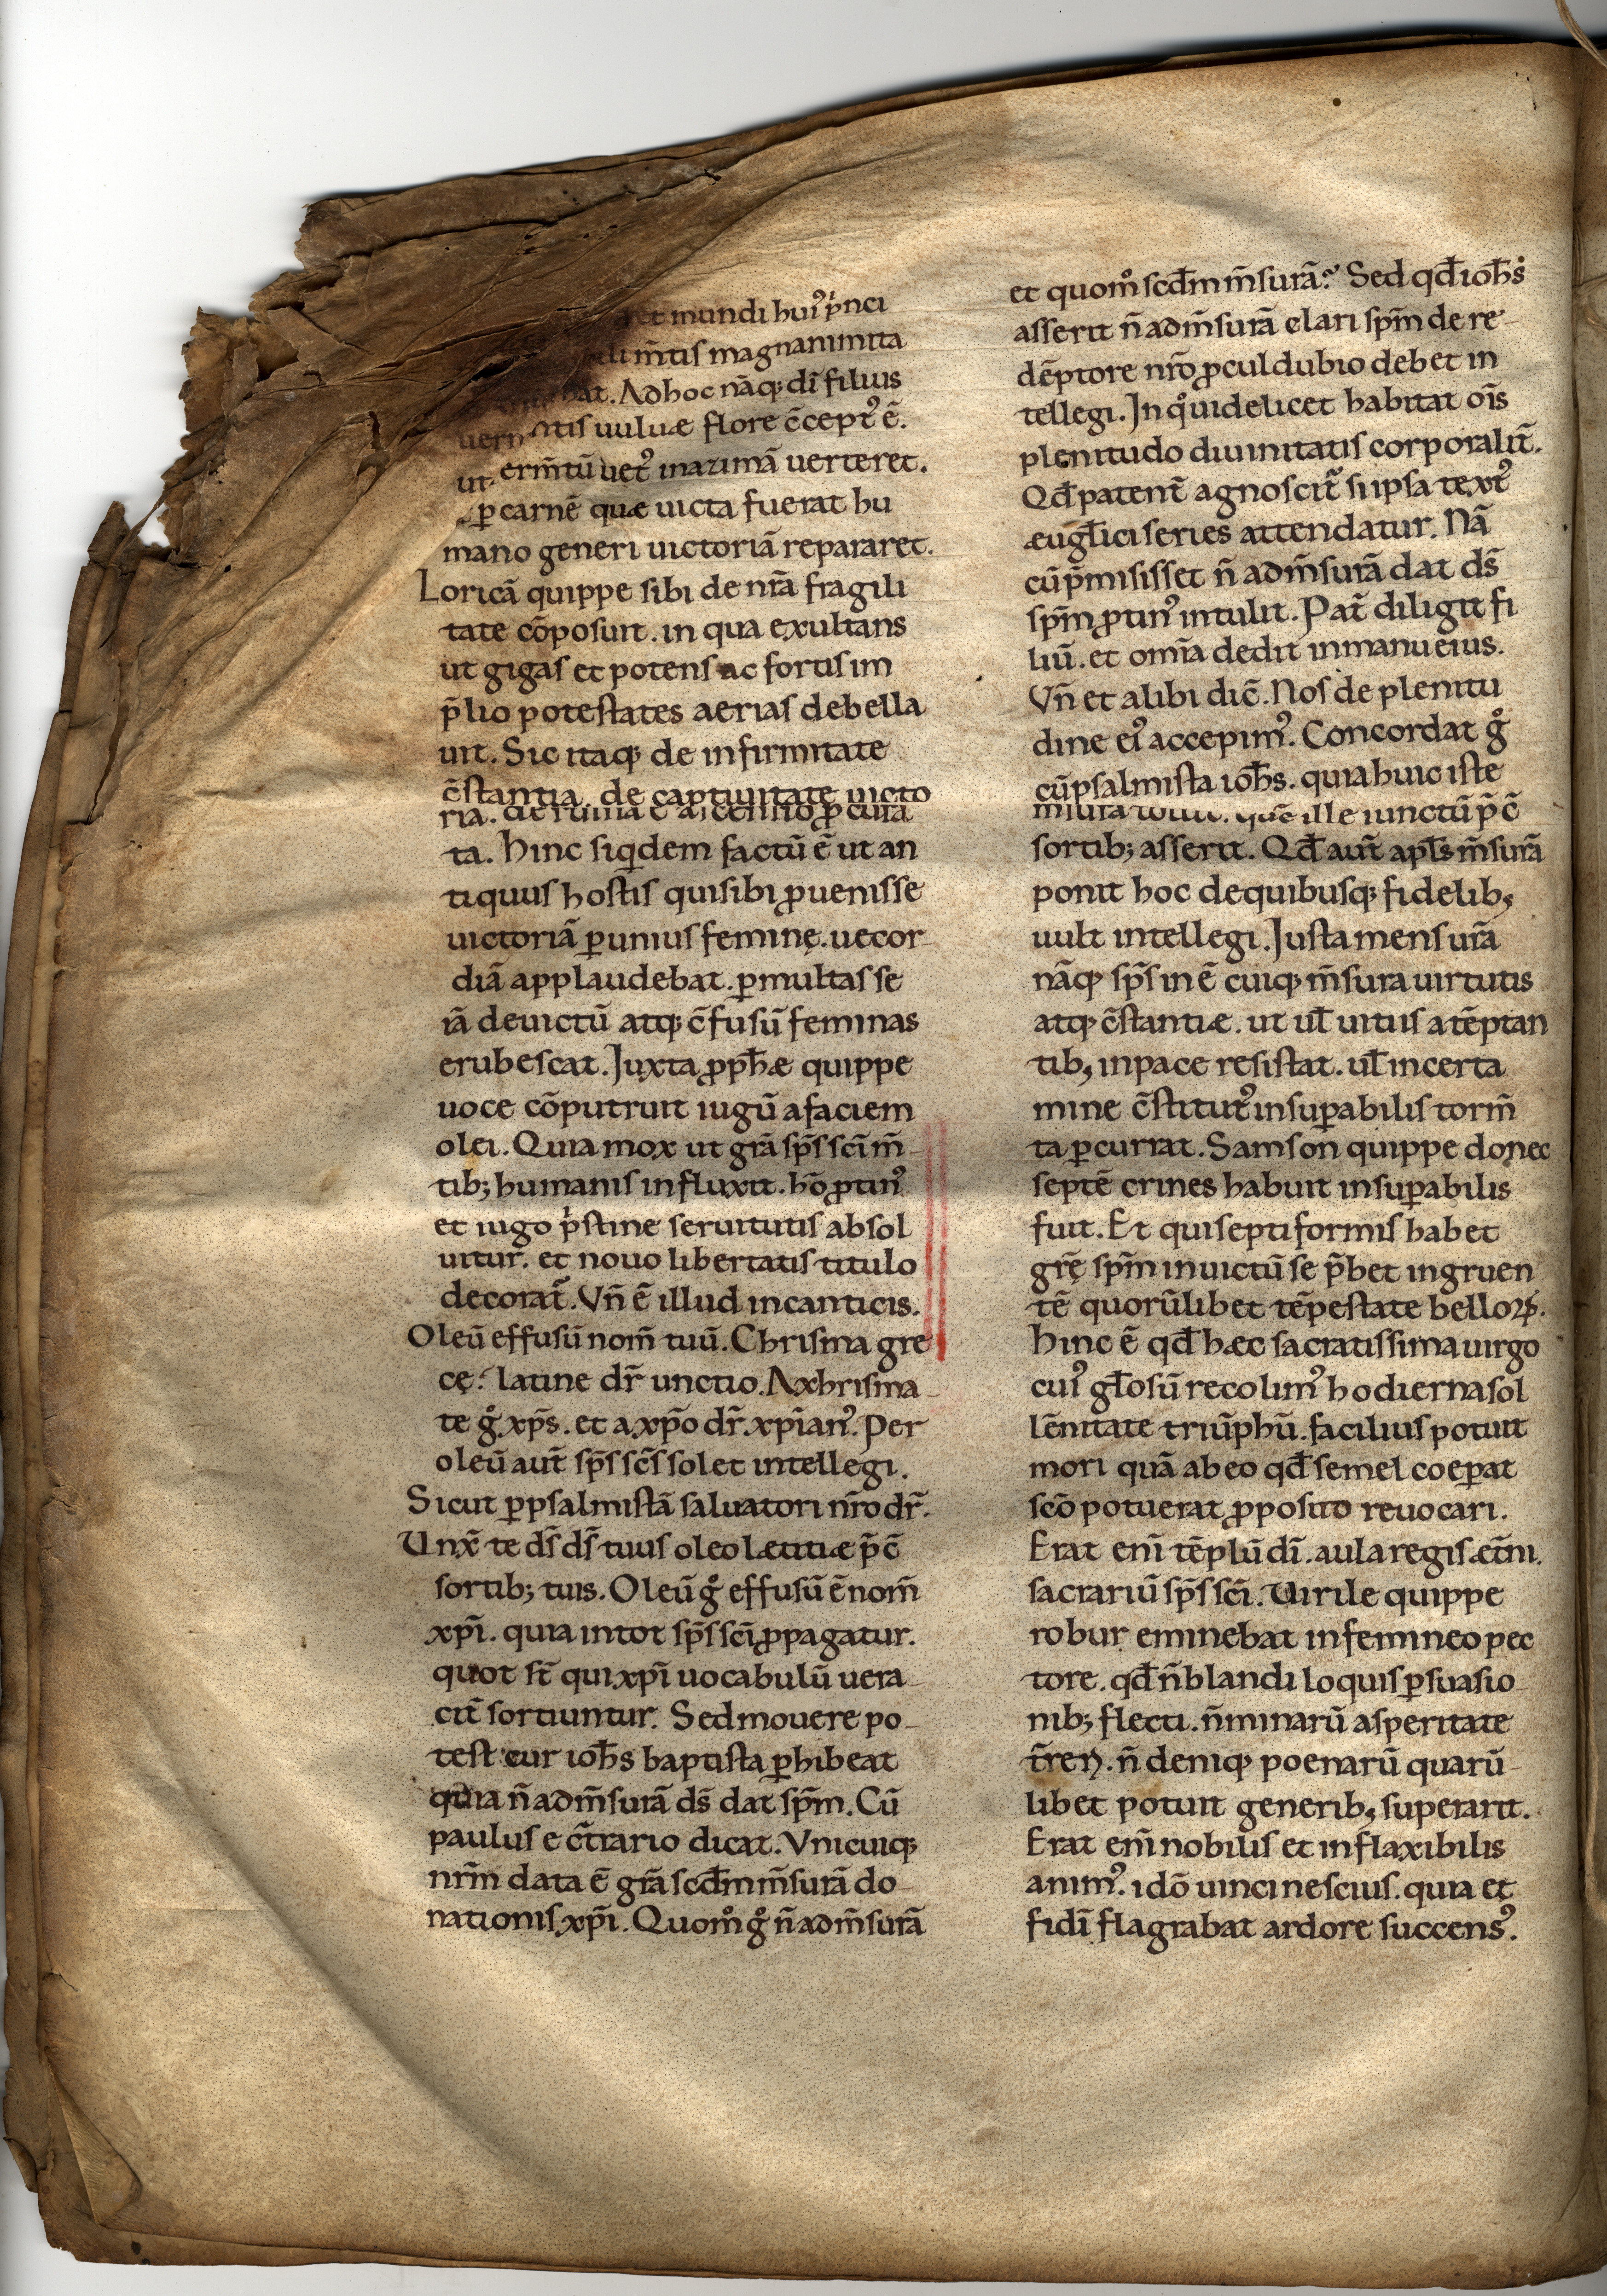 et mundi huiꝰ pͥnci
m̄tis magnanimita
bat. Ad hoc nāq; dī filius
uern tis uuluæ flore c̄ceptꝰ ē.
ut erm̄tū uetꝰ inazimā uerteret.
ꝑ carnē quæ uicta fuerat hu
mano generi uictoriā repararet.
Loricā quippe sibi de nr̄a fragili
tate cōposuit. in qua exultans
ut gigas et potens ac fortis im
p̄lio potestates aerias debella
uit. Sic itaq; de infirmitate
c̄stantia. de captiuitate uicto
ria. de ruina ē ascensio ꝓcura
ta. hinc siq̇dem factū ē ut an
tiquus hostis qui sibi ꝓuenisse
uictoriā ꝑ unius feminę. uecor-
diā applaudebat. ꝑ multas se
iā deuictū atq; c̄fusū feminas
erubescat. Juxta ꝓph̄æ quippe
uoce cōputruit iugū a faciem
olei. Quia mox ut gr̄a sp̄s sc̄i m̄-
tib; humanis influxit. hō ꝓtinꝰ
et iugo pͥstine seruitutis absol
uitur. et nouo libertatis titulo
decorat̄. Vn̄ ē illud in canticis.
Oleū effusū nom̄ tuū. Chrisma gre
cę. latine dr̄ unctio. A xhrisma-
te g̊ xp̄s. et a xp̄o dr̄. xp̄ianꝰ. Per
oleū aut̄ sp̄s sc̄s solet intellegi.
Sicut ꝑ psalmistā saluatori nr̄o dr̄.
Unx̄ te ds̄ ds̄ tuus oleo lætitiæ p̄ c̄
sortib; tuis. Oleū g̊ effusū ē nom̄
xp̄i. quia in tot sp̄s sc̄i ꝓpagatur.
quot st̄ qui xp̄i uocabulū uera-
cit̄ sortiuntur. Sed mouere po-
test cur ioh̄s baptista ꝑhibeat
quia n̄ ad m̄surā ds̄ dat sp̄m. Cū
paulus e c̄trario dicat. Vnicuiq;
nr̄m data ē gr̄a scd̄m m̄surā do-
nationis xp̄i. Quom̊ g̊ n̄ ad m̄surā
et quom̊ scd̄m m̄surā? Sed qd̄ ioh̄s
asserit n̄ ad m̄surā elari sp̄m de re-
dēptore nr̄o ꝓculdubio debet in
tellegi. In q̊ uidelicet habitat oīs
plenitudo diuinitatis corporalit̄.
Qd̄ patent̄ agnoscit̄ si ipsa textꝰ
æuglici series attendatur. Nā
cū p̄misisset n̄ ad m̄surā dat ds̄
sp̄m ꝓtinꝰ intulit. Pat̄ diligit fi
liū. et omīa dedit in manu eius.
Vn̄ et alibi dic̄. Nos de plenitu
dine eiꝰ accepimꝰ. Concordat g̊
cū psalmista ioh̄s. quia huic iste
ille iunctū p̄ c̄
sortib; asserit. Qd̄ aut̄ apl̄s m̄surā
ponit hoc de quibusq; fidelib;
uult intellegi. Justa mensurā
nāq; sp̄s inē cuiq; m̄sura uirtutis
atq; c̄stantiæ. ut ul̄ uitiis a tēptan
tib; in pace resistat. ul̄ in certa
mine c̄stitutꝰ insuꝑabilis torm̄
ta ꝑcurrat. Samson quippe donec
septē crines habuit insuꝑabilis
fuit. Et qui septiformis habet
gr̄ę sp̄m inuictū se p̄bet ingruen
tē quorūlibet tēpestate belloꝝ.
hinc ē qd̄ hæc sacratissima uirgo
cuiꝰ gl̄osū recolimꝰ hodierna sol
lēnitate triūphū. facilius potuit
mori quā ab eo qd̄ semel coeꝑat
sc̄o potuerat ꝓposito reuocari.
Erat enī tēplū dī. aula regis æt̄ni.
sacrariū sp̄s sc̄i. Uirile quippe
robur eminebat in femineo pec
tore. qd̄ n̄ blandi loquis ꝑsuasio-
nib; flecti. n̄ minarū asperitate
t̄reri. n̄ deniq; poenarū quarū-
libet potuit generib; superarit.
Erat enī nobilis et inflaxibilis
animꝰ. idō uinci nescius. quia et
fidī flagrabat ardore succensꝰ.